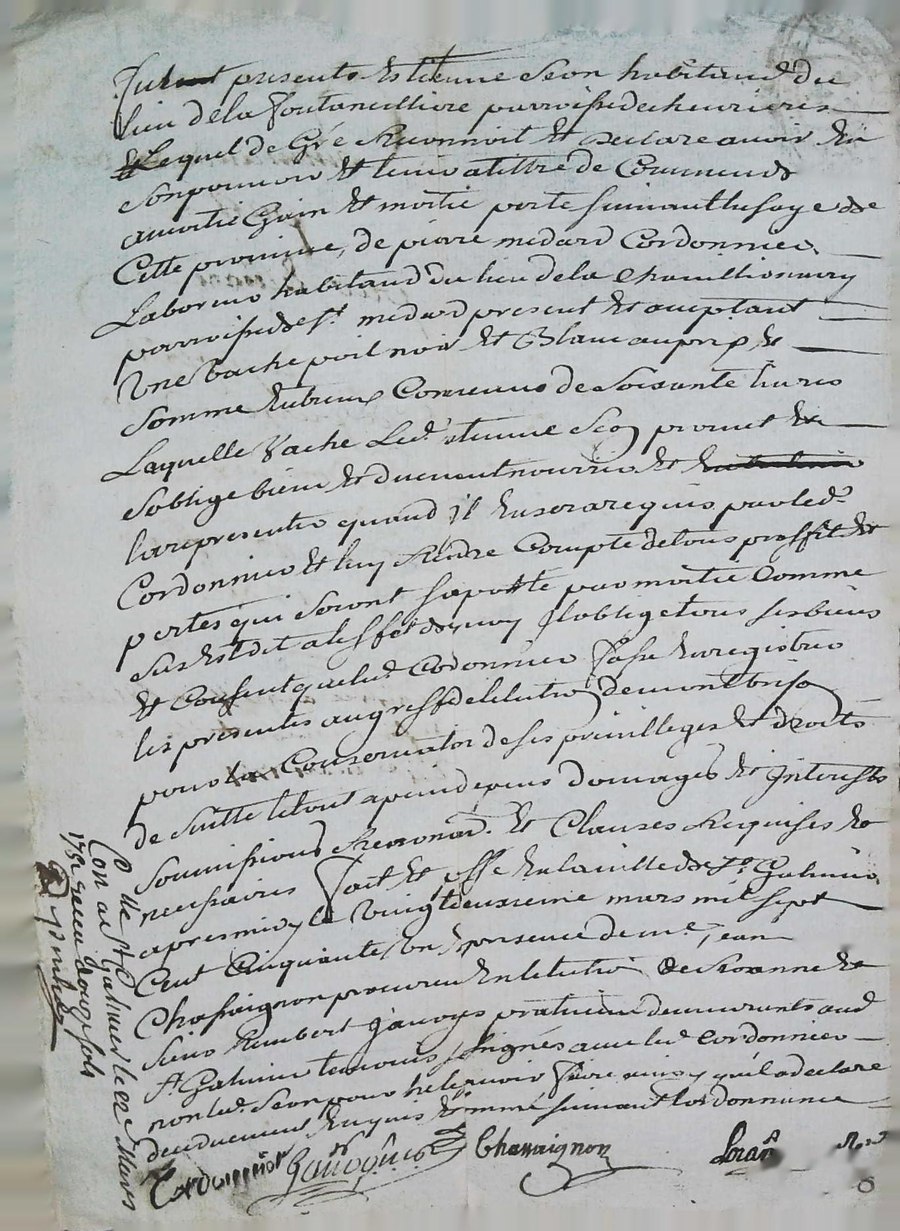 presents Estienne Seon habitand du
lieu de la Fontanulliere parroisse de chevrieres
Lequel de Gré Reconnoit Et declare avoir En
son pouvoir Et tenir a tittre de Commende
a moitie Grain Et moitie perte suivant lusage de
Cette province, de pierre medard Cordonnier
Laboreur habitand du lieu de la
parroisse de st. medard present Et acceptant
Une vache poil noir Et Blanc au prix &
somme Entreux Convenus de soisante livres
Laquelle vache Led. Etienne Seon promet &
soblige bien Et duement nourrir Et
la representer quand il En sera requis par led.
Cordonnier Et luy Rendre Compte de tous proffit Et
pertes qui seront suporté par moitie Comme
sus Est dit a leffet de quoy Il oblige tous ses biens
Et Consent que led. Cordonnier fasse Enregistrer
les presentes au greffe de lelection de montbrison
pour la Conservation de ses privilleges Et droits
de suitte le tout a peine de tous domages Et Interests
soumissions Renonad. Et Clauses Requises Et
necessaires fait Et En la ville de St. Galmier
apres midy Le vingt deuxieme mars mil sept
Cent Cinquante En presence de me. jean
Chassaignon procureur En lelection de Roanne Et
sieur Rimbert praticien demeurants aud.
St. Galmier temoins soignés avec led. Cordonnier
non led. Seon pour ne le savoir faire ainsy quil a declare
deuduement Enquis Et sommé suivant lordonnance
Cordonnier Chassaignon
Clle. a St. Galmier le 22 Mars
1752 Receu douze sols